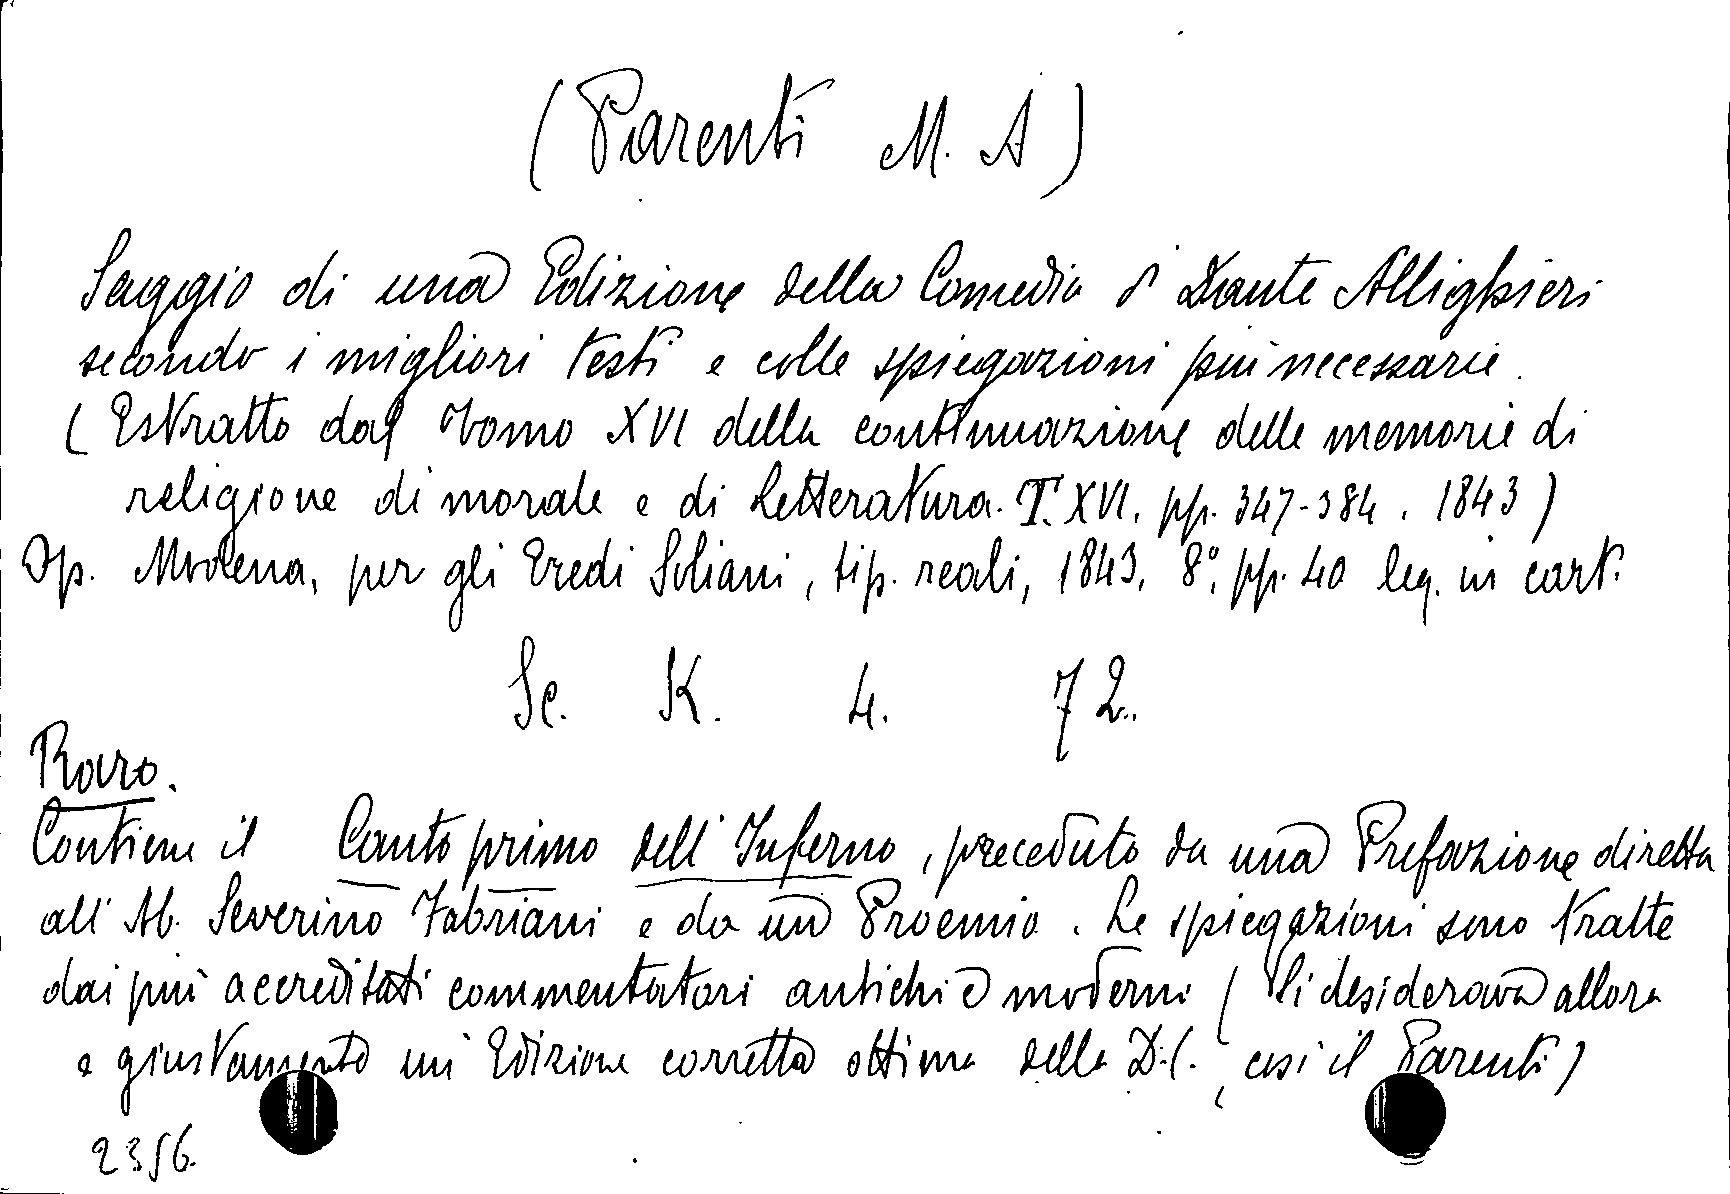 (Parenti M. A)
Saggio di una Edizione della Comedia di Dante Allighieri
secondo i migliori testi e colle spiegazioni più necessarie.
(Estratto dal Tomo XVI della continuazione delle memorie di
religione di morale e di Letteratura. T. XVI, pp. 347-384. 1843)
Op. Modena, per gli Eredi Soliani, tip. reali, 1843, 8°, pp. 40 leg. in cart.
Sc. K. 4. 72.
Raro.
Contiene il Canto primo dell'Inferno, preceduto da una Prefazione diretta
all'Ab. Severino Fabriani e da un Proemio. Le spiegazioni sono tratte
dai più accreditati commentatori antichi e moderni (Si desiderava allora
e giustamente un'Edizione corretta ottima della D.C., così il Parenti)
2356.